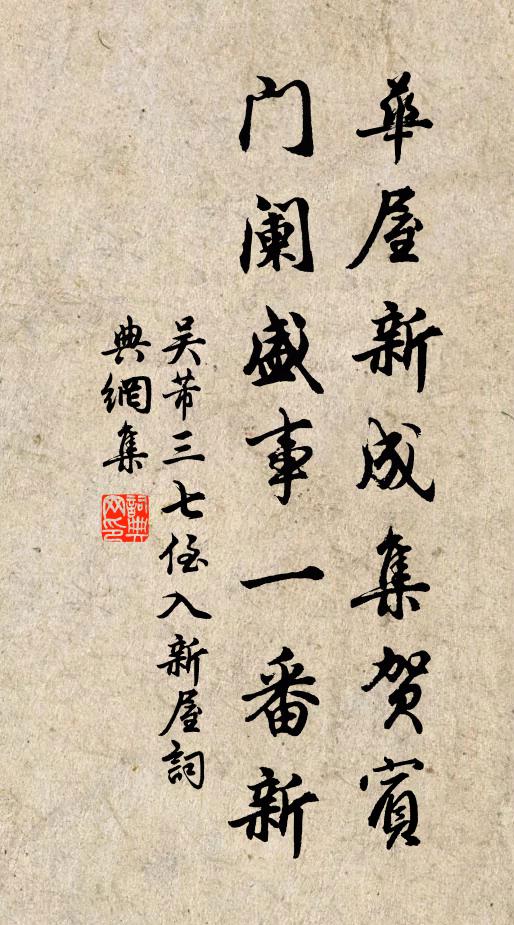 華屋新成集贺賓
门阑盛事一番新
吴芾三七侄入新屋詞
典網集
詞典网印